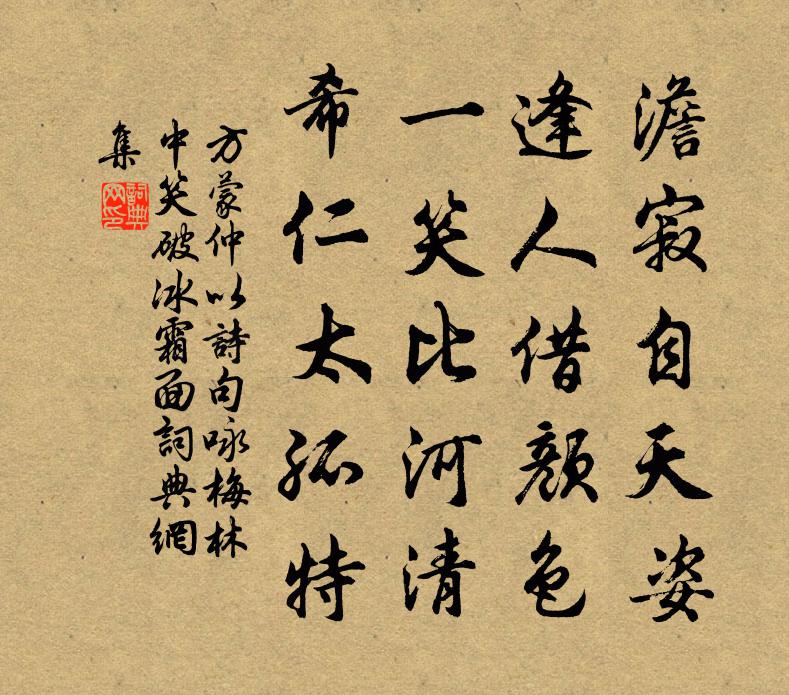 澹寂自天姿
逢人借顏色
一笑比河清
希仁太孤特
方蒙仲以詩句咏梅林
中笑破冰霜面詞典網
集
詞典
网印